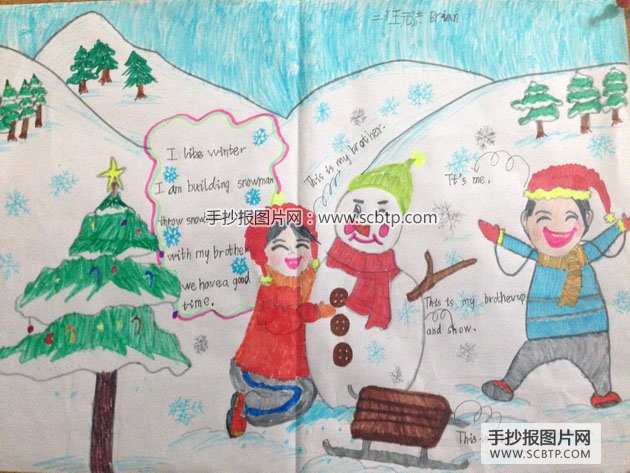 Brian
I like winter
I am building snowman
throw snow
with my brother
we have a good
time.
This is my brother.
It's me.
This is my
and snow.
This
手抄报图片网：www.scbtp.com
手抄报图片网
SCBTP.COM